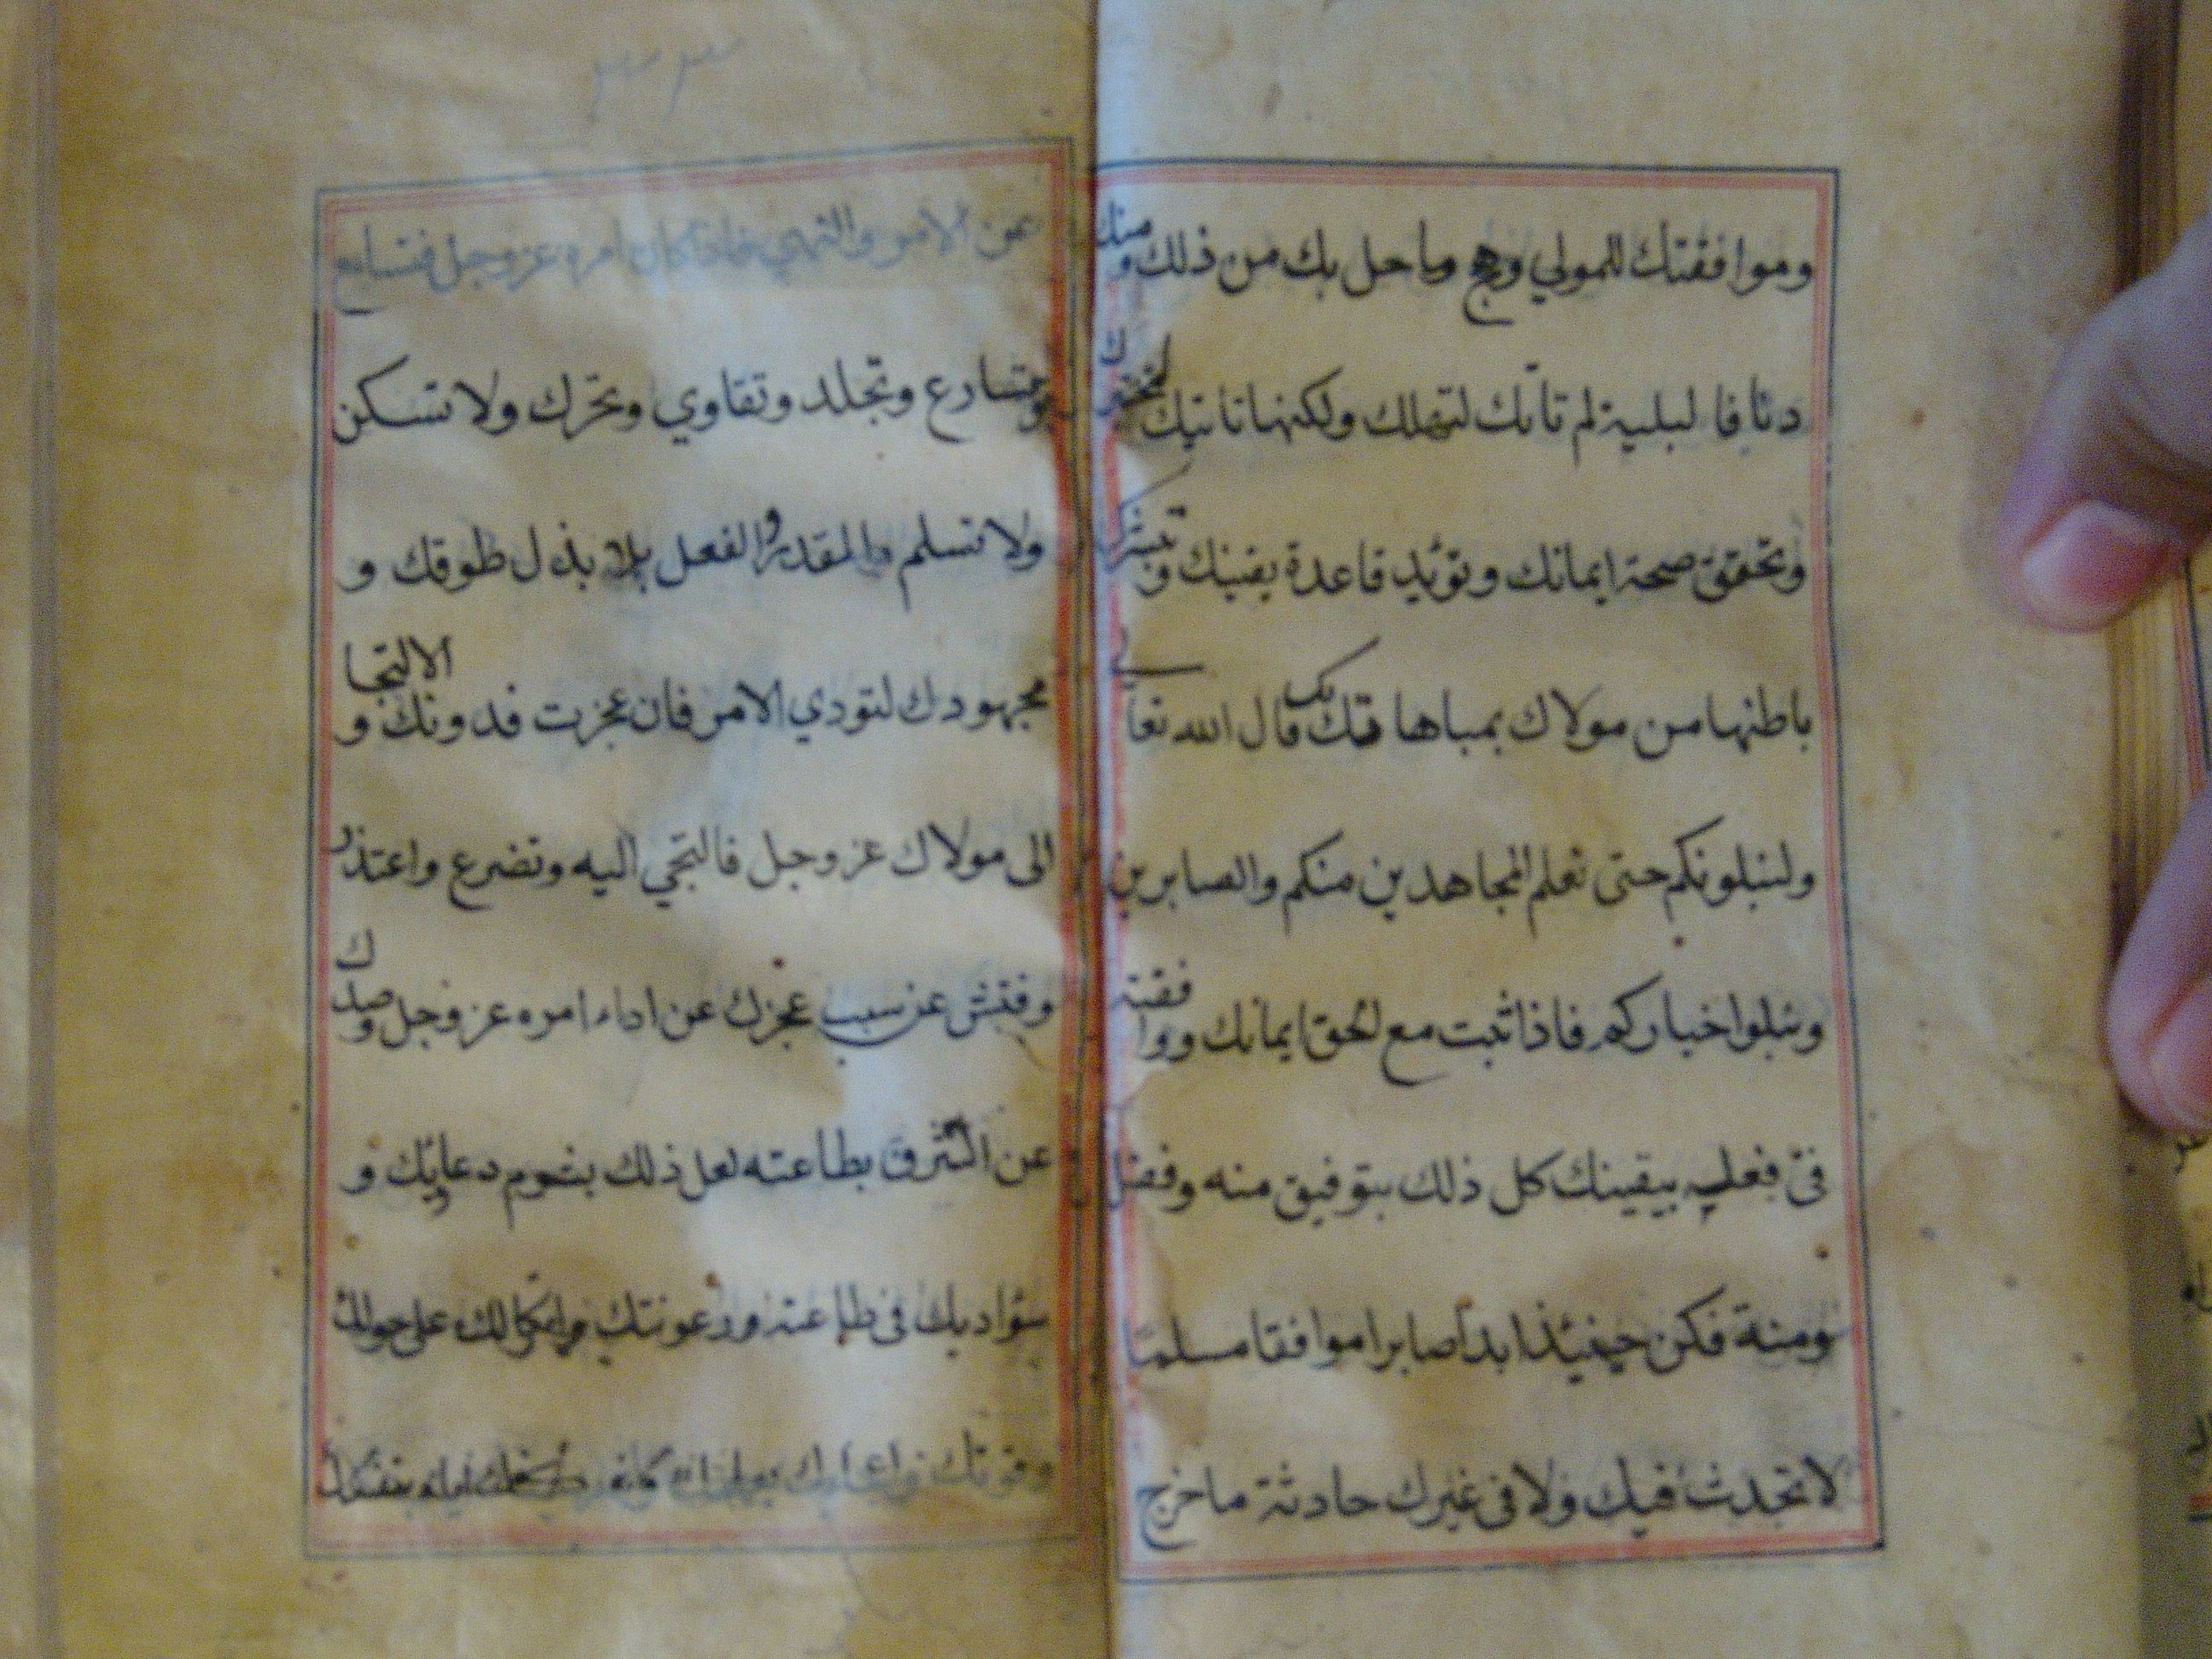 وموافقتك للمولي وما حل بك من ذلك ومنك
دثا فا لبلية لم تاتك لتهلك ولكنها تاتيك لتختبرك
وتحقق صحة ايمانك وتؤيد قاعدة يقينك وتبشرك
باطنها من مولاك بمباهاتك بك قال الله تعالي
ولنبلونكم حتى نعلم المجاهدين منكم والصابرين
ونبلوا خباركم فاذا ثبت مع الحق ايمانك ووافقته
في فعله بيقينك كل ذلك بتوفيق منه وفضل
ومنة فكن حينئذ ابدا صابرا موافقا مسلما
لا تحدث فيك ولا في غيرك حادثة ما خرج
عن الامر والنهي فاذا كان امره عز وجل فتسامع
وتسارع وتجلد وتقاوي وتحرك ولا تسكن
ولا تسلم للمقدر والفعل بل بذل طوقك و
مجهودك لتودي الامر فان عجزت فدونك والالتجا
الى مولاك عز وجل فالتجي اليه وتضرع واعتذر
وفتش عن سبب عجزك عن اداء امره عز وجل وصدك
عن التشرق بطاعته لعل ذلك بشوم دعايك و
سؤاد بك في طاعته ورعونتك واتكالك على حولك
وقوتك